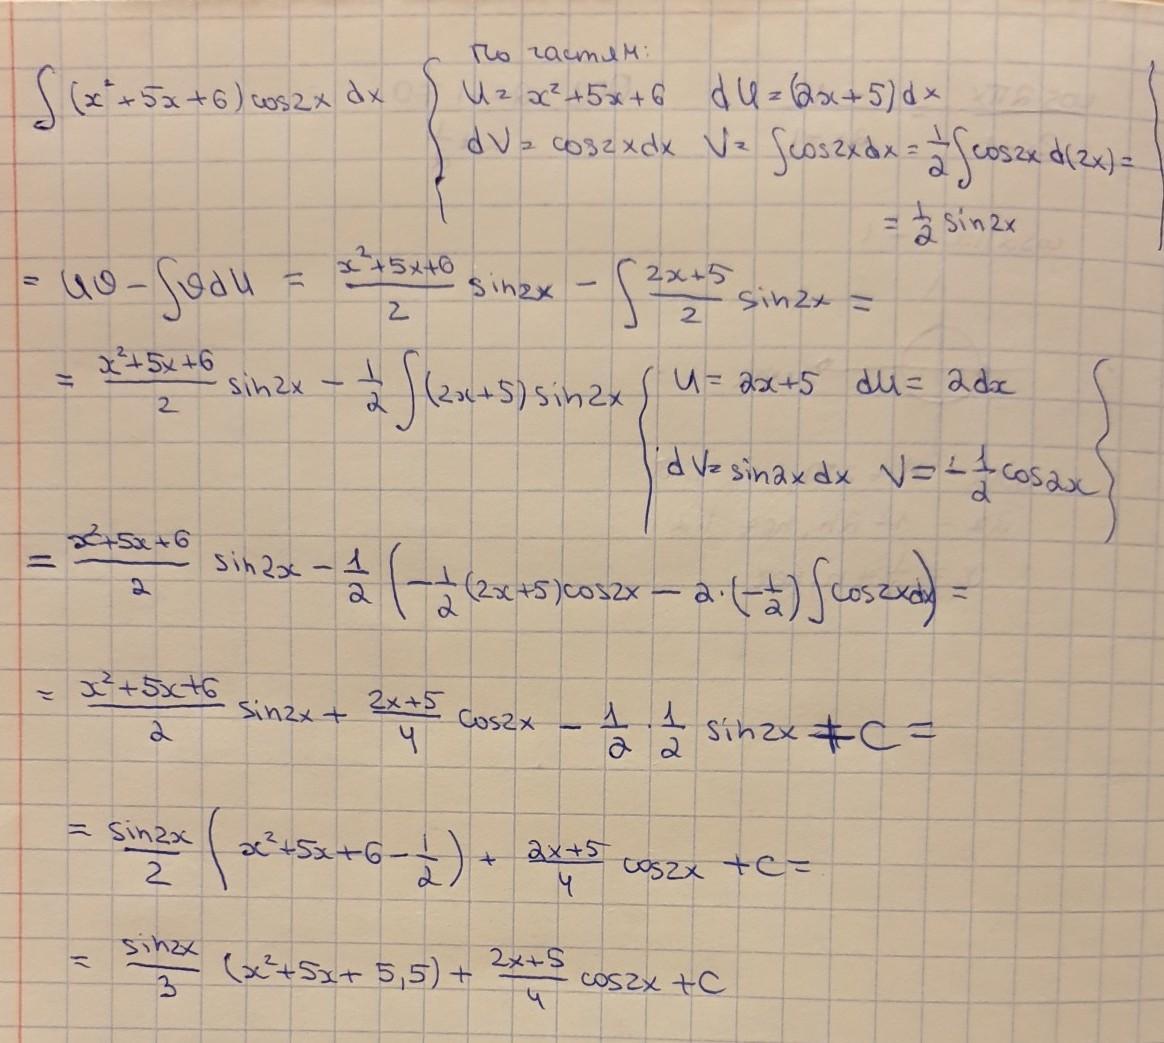 По частям:
∫(x²+5x+6)cos2x dx { U= x²+5x+6 dU=(2x+5)dx
dV= cos2xdx V= ∫cos2xdx = 1/2 ∫cos2x d(2x)=
= 1/2 sin2x
= uv - ∫vdu = (x²+5x+6)/2 sin2x - ∫ (2x+5)/2 sin2x =
= (x²+5x+6)/2 sin2x - 1/2 ∫(2x+5)sin2x { U= 2x+5 du= 2dx
dV=sin2xdx V= -1/2 cos2x }
= (x²+5x+6)/2 sin2x - 1/2 (-1/2 (2x+5)cos2x - 2·(-1/2) ∫cos2xdx) =
= (x²+5x+6)/2 sin2x + (2x+5)/4 cos2x - 1/2 · 1/2 sin2x + C =
= sin2x/2 (x²+5x+6-1/2) + (2x+5)/4 cos2x +C=
= sin2x/3 (x²+5x+5,5) + (2x+5)/4 cos2x +C